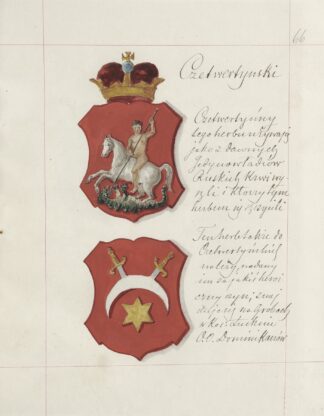 66
Czetwertyński
Czetwertyńscy
tego herbu używają
jako z dawnych
Jedynowładców
Ruskich krwi wy
szli i którzy tym
herbem się szczycili
Ten herb także do
Czetwertyńskich
należy, nadany
im za jakiś heroi
czny czyn, znaj
duje się na grobach
w koś. Łuckim
O.O. Dominikanów